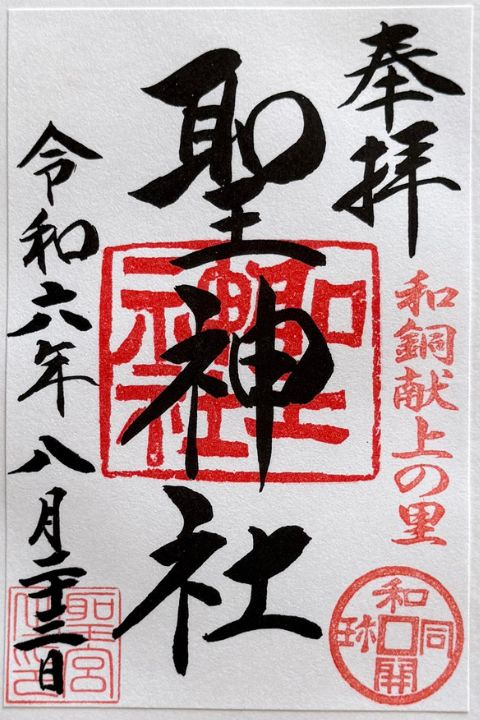 奉拝
和銅献上の里
和同開珎
聖神社
聖神社
令和六年八月二十三日
聖宮